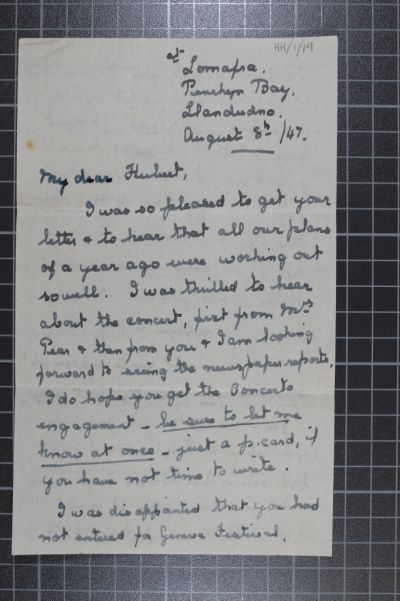 HH/1/19
at
Lomapra.
Penrhyn Bay.
Llandudno.
August 8th/47.
My dear Hubert,
I was so pleased to get your
letter & to hear that all our plans
of a year ago were working out
so well. I was thrilled to hear
about the concert, first from Mrs
Pear & then from you & I am looking
forward to seeing the newspaper reports.
I do hope you get the Concerto
engagement - be sure to let me
know at once - just a p.card, if
you have not time to write.
I was disappointed that you had
not entered for Geneva Festival.